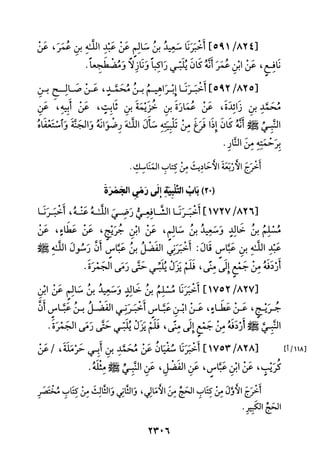 [٨٢٤/ ٥٩١] أَخْبَرَنَا سَعِيدُ بنُ سَالِمٍ عَنْ عَبْدِ اللَّـهِ بنِ عُمَرَ، عَنْ
نَـافِـعٍ، عَنْ ابْنِ عُمَرَ أَنَّهُ كَانَ يُلَبِّـي رَاكِباً وَنَازِلاً وَمُضْطَجِعاً.
[٨٢٥/ ٥٩٢] أَخْـبَـرَنَـا إِبْـرَاهِـيـمُ بـنُ مُـحَـمَّـدٍ، عَـنْ صَـالِـحِ بـنِ
مُحَمَّدِ بنِ زَائِدَةَ، عَنْ عُمَارَةَ بنِ خُزَيْمَةَ بنِ ثَابِتٍ، عَنْ أَبِيهِ، عَنِ
النَّبِـيِّ ﷺ أَنَّهُ كَانَ إِذَا فَرَغَ مِنْ تَلْبِيَتِهِ سَأَلَ اللَّـهَ رِضْوَانَهُ وَالجَنَّةَ وَاسْتَعْفَاهُ
بِرَحْمَتِهِ مِنَ النَّارِ.
أَخْرَجَ الأَرْبَعَةَ الأَحَادِيثَ مِنْ كِتَابِ المَنَاسِكِ.
(٢٠) بَابُ التَّلْبِيَةِ إِلَى رَمْيِ الجَمْرَةِ
[٨٢٦/ ١٧٢٧] أَخْـبَـرَنَـا الـشَّـافِـعِـيُّ رَضِـيَ الـلَّـهُ عَـنْـهُ، أَخْـبَـرَنَـا
مُسْلِمُ بنُ خَالِدٍ وَسَعِيدُ بنُ سَالِمٍ، عَنِ ابْنِ جُرَيْجٍ، عَنْ عَطَاءٍ، عَنْ
عَبْدِ اللَّـهِ بنِ عَبَّاسٍ قَالَ: أَخْبَرَنِـي الفَضْلُ بنُ عَبَّاسٍ أَنَّ رَسُولَ اللَّـهِ ﷺ
أَرْدَفَهُ مِنْ جَمْعٍ إِلَى مِنًى، فَلَمْ يَزَلْ يُلَبِّـي حَتَّى رَمَى الجَمْرَةَ.
[٨٢٧/ ١٧٥٢] أَخْبَرَنَا مُسْلِمُ بنُ خَالِدٍ وَسَعِيدُ بنُ سَالِمٍ عَنِ ابْنِ
جُـرَيْـجٍ، عَـنْ عَـطَـاءٍ، عَـنِ ابْـنِ عَـبَّـاسٍ أَخْـبَـرَنِـي الـفَـضْـلُ بـنُ عَـبَّـاسٍ أَنَّ
النَّبِـيَّ ﷺ أَرْدَفَهُ مِنْ جَمْعٍ إِلَى مِنًى، فَلَمْ يَزَلْ يُلَبِّـي حَتَّى رَمَى الجَمْرَةَ.
[١١٨/أ] [٨٢٨/ ١٧٥٣] أَخْبَرَنَا سُفْيَانُ عَنْ مُحَمَّدِ بنِ أَبِـي حَرْمَلَةَ، /عَنْ
كُرَيْبٍ، عَنْ ابْنِ عَبَّاسٍ، عَنِ الفَضْلِ، عَنِ النَّبِـيِّ ﷺ مِثْلَهُ.
أَخْرَجَ الأَوَّلَ مِنْ كِتَابِ الحَجِّ مِنَ الأَمَالِـي، وَالثَّانِـيَ وَالثَّالِثَ مِنْ كِتَابِ مُخْتَصَرِ
الحَجِّ الكَبِيرِ.
٢٣٠٦